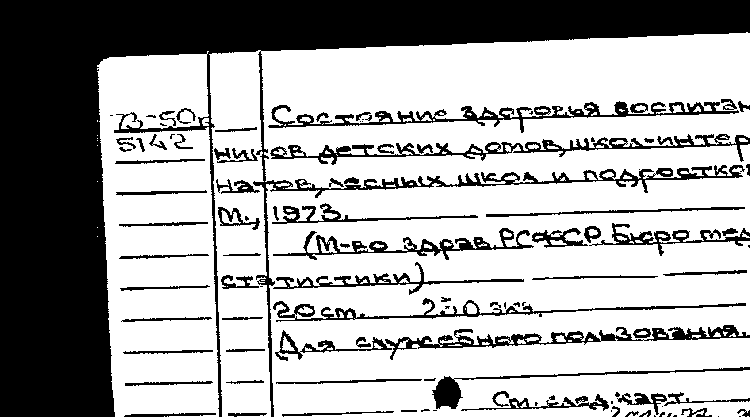 73-50к
5142
Состояние здоровья воспитан
ников детских домов, школ-интер
натов, лесных школ и подростков
М., 1973.
(М-во здрав. РСФСР. Бюро мед
статистики)
20 ст. экз.
Для служебного пользования.
См. след. карт.